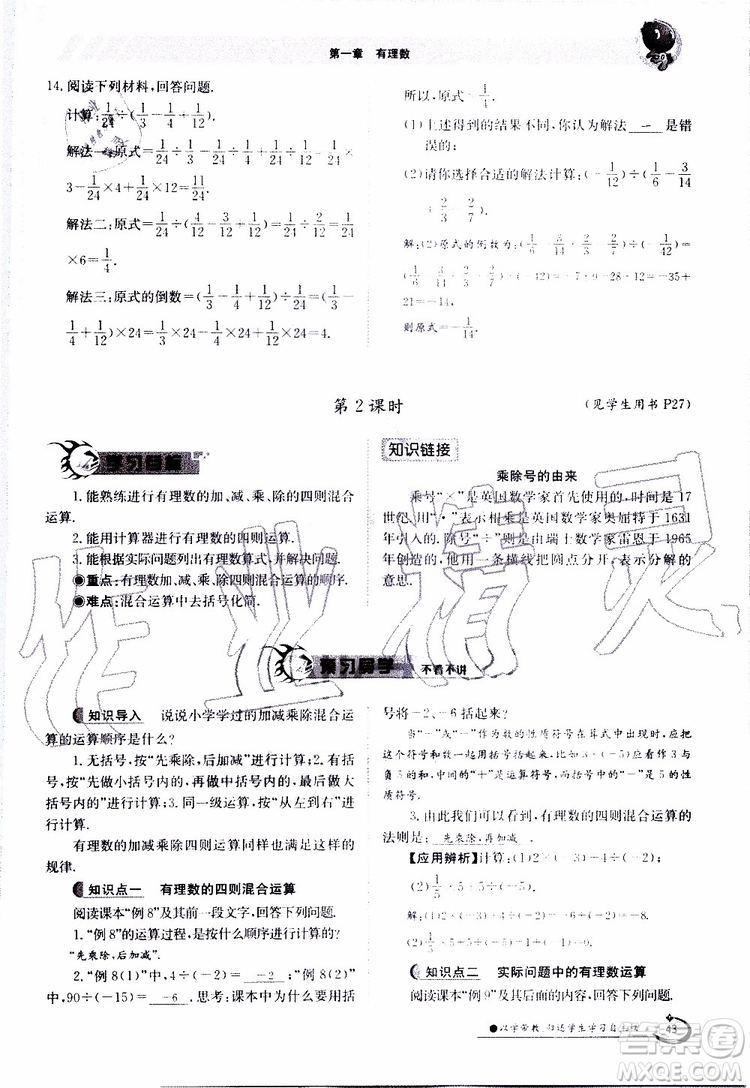 第一章 有理数
14. 阅读下列材料,回答问题.
计算:1/24÷(1/3-1/4+1/12).
解法一:原式=1/24÷1/3-1/24÷1/4+1/24÷1/12=1/24×
3-1/24×4+1/24×12=11/24.
解法二:原式=1/24÷(4/12-3/12+1/12)=1/24÷2/12=1/24
×6=1/4.
解法三:原式的倒数=(1/3-1/4+1/12)÷1/24=(1/3-
1/4+1/12)×24=1/3×24-1/4×24+1/12×24=4.
所以,原式=1/4.
(1)上述得到的结果不同,你认为解法 一 是错
误的;
(2)请你选择合适的解法计算:(-1/42)÷(1/6-3/14
+2/3-2/7).
解:(2)原式的倒数为:(1/6-3/14+2/3-2/7)÷
(-1/42)=-7+9-28+12=-35+
21=-14.
则原式=-1/14.
第2课时
(见学生用书 P27)
学习目标
1.能熟练进行有理数的加、减、乘、除的四则混合
运算.
2.能用计算器进行有理数的四则运算.
3.能根据实际问题列出有理数算式,并解决问题.
●重点:有理数加、减、乘、除四则混合运算的顺序.
●难点:混合运算中去括号化简.
知识链接
乘除号的由来
乘号“×”是英国数学家首先使用的,时间是17
世纪.用“·”表示相乘是英国数学家奥屈特于1631
年引入的.除号“÷”则是由瑞士数学家雷恩于1965
年创造的,他用一条横线把圆点分开,表示分解的
意思.
预习导学 不看不讲
知识导入 说说小学学过的加减乘除混合运
算的运算顺序是什么?
1.无括号时,按“先乘除,后加减”;2.有括号
时,按“先做小括号内的,再做中括号内的,最后做大
括号内的”;3.同一级运算,按“从左到右”进行.
有理数的加减乘除四则运算同样也满足这样的
规律.
知识点一 有理数的四则混合运算
阅读课本“例8”及其前一段文字,回答下列问题.
1.“例8”的运算过程,是按什么顺序进行计算的?
“先乘除,后加减”.
2.“例8(1)”中,(-8)+4÷(-2)= -2 ;“例8(2)”
中,90÷(-15)= -6 .思考:课本中为什么用括
号将-2、-6括起来?
当“-”或“+”作为数的性质符号在算式中时,应把
这个符号和数一起用括号括起来,比如3+(-5)应看作3与
负5的和,中间的“+”是运算符号,而-5中的“-”是5的
性质符号.
3.由此我们可以看到,有理数的四则混合运算的
法则是: 先乘除,再加减 .
【应用辨析】计算:(1)2×(-3)-4÷(-1/2);
知识点二 实际问题中的有理数运算
阅读课本“例9”,回答下列问题.
43